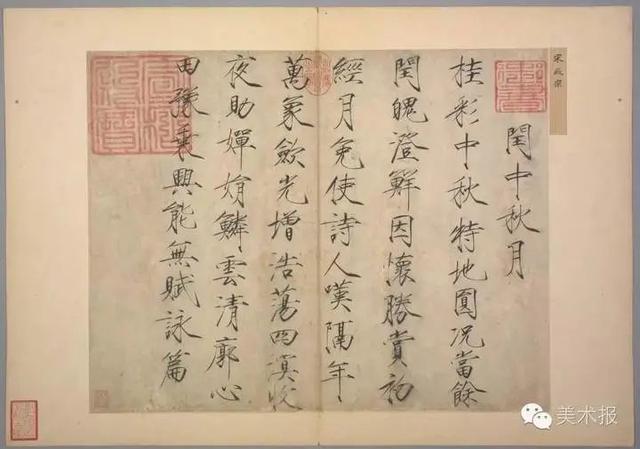 宋徽宗
閏中秋月
桂彩中秋特地圓況當餘
閏魄澄鮮因懷勝賞初
經月免使詩人嘆隔年
萬象歛光增浩蕩四溟收
夜助嬋娟鱗雲清廓心
田豫乘興能無賦詠篇
美术报